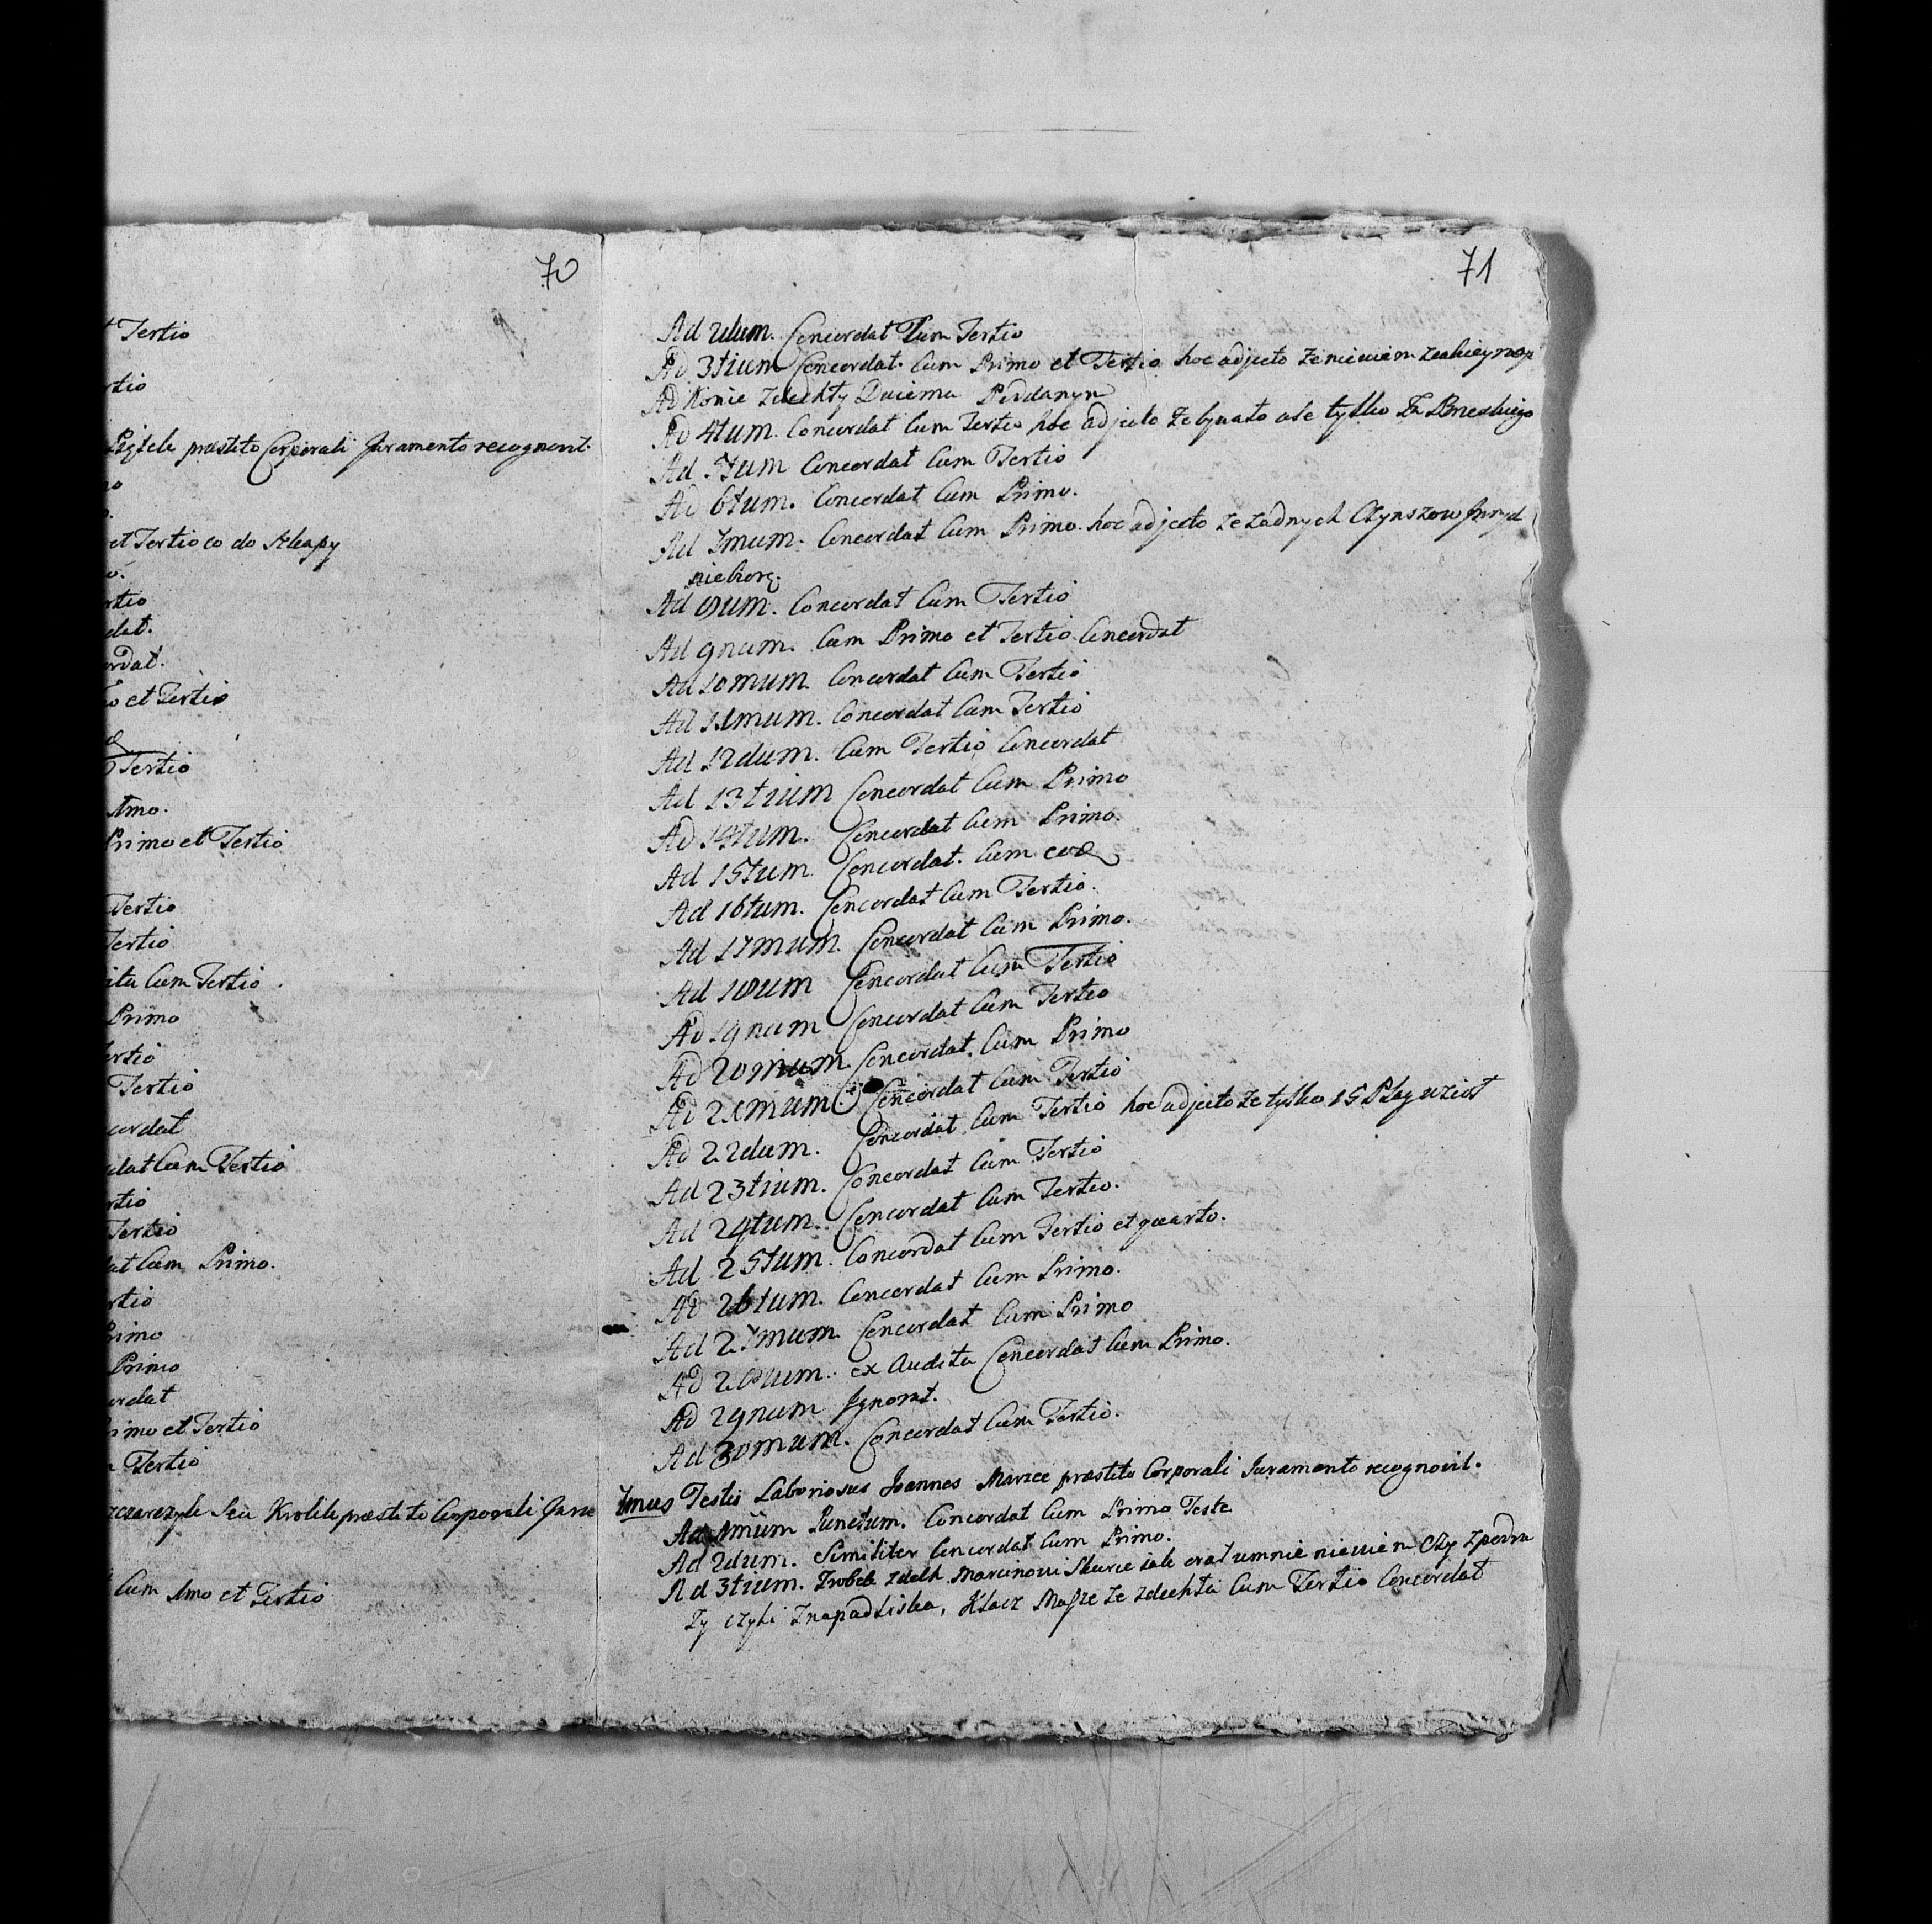 70
t Tertio
rtio
Piątek præstito Corporali Juramento recognovit.
no
et Tertio co do Klapy
o.
rtio
dat.
ordat.
o et Tertio
Tertio
1mo.
Primo et Tertio
Tertio
Tertio
ita Cum Tertio.
Primo
ertio
Tertio
cordat
dat Cum Tertio
rtio
Tertio
at Cum Primo.
rtio
Primo
Primo
cordat
rimo et Tertio
n Tertio
Seu Krolik præstito Corporali Jura
Cum 1mo et Tertio
71
Ad 2dum. Concordat Cum Tertio
Ad 3tium Concordat. Cum Primo et Tertio hoc adjecto ze niewiem
Ad Konie zdechły Dwiema Poddanym
Ad 4tum. Concordat Cum Tertio hoc adjecto ale tylko
Ad 5tum Concordat Cum Tertio
Ad 6tum. Concordat Cum Primo.
Ad 7mum. Concordat Cum Primo. hoc adjecto ze zadnych Czynszow
niebiorą.
Ad 8vum. Concordat Cum Tertio
Ad 9num. Cum Primo et Tertio Concordat
Ad 10mum. Concordat Cum Tertio
Ad 11mum. Concordat Cum Tertio
Ad 12dum. Cum Tertio Concordat
Ad 13tium Concordat Cum Primo
Ad 14tum. Concordat Cum Primo.
Ad 15tum Concordat. Cum eod
Ad 16tum. Concordat Cum Tertio.
Ad 17mum. Concordat Cum Primo.
Ad 18vum Concordat Cum Tertio
Ad 19num Concordat Cum Tertio
Ad 20mum. Concordat. Cum Primo
Ad 21mum. Concordat Cum Tertio
Ad 22dum. Concordat Cum Tertio hoc adjecto ze tylko 15 Plag wziął
Ad 23tium. Concordat Cum Tertio
Ad 24tum. Concordat Cum Tertio.
Ad 25tum. Concordat Cum Tertio et quarto.
Ad 26tum. Concordat Cum Primo.
Ad 27mum. Concordat Cum Primo
Ad 28vum. ex Audita Concordat Cum Primo.
Ad 29num Ignorat.
Ad 30mum. Concordat Cum Tertio.
7mus Testis Laboriosus Joannes Marzec præstito Corporali Juramento recognovit.
Ad 1mum Punctum. Concordat Cum Primo Teste
Ad 2dum. Similiter Concordat Cum Primo.
Ad 3tium. zdech Marcinowi umnie niewiem Czy
zy czyli Znapadliska, Klacz ze zdechła Cum Tertio Concordat